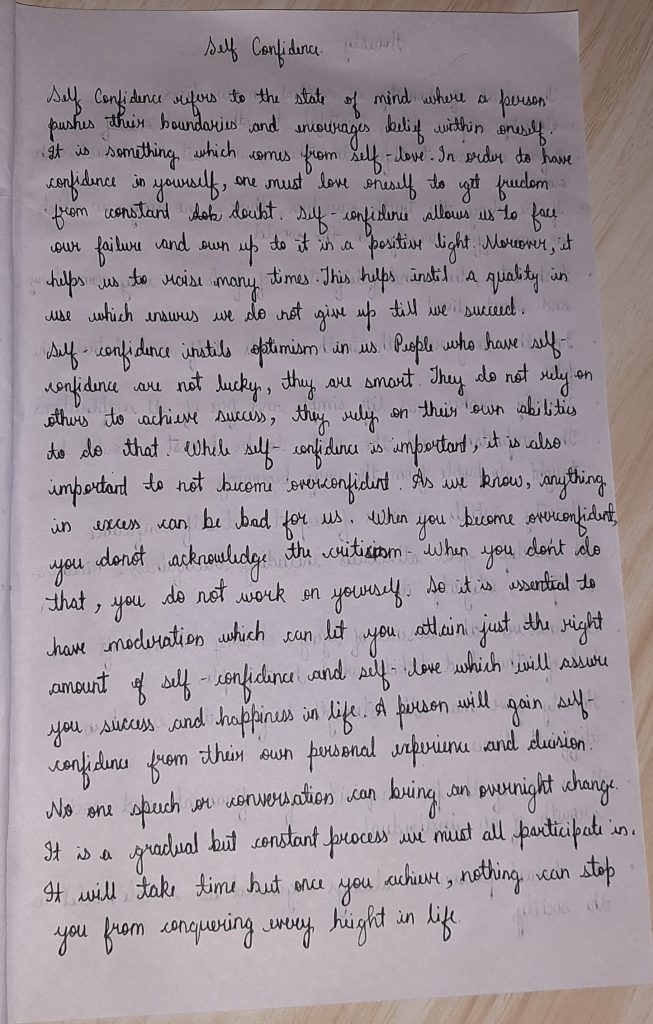 Self Confidence.
Self Confidence refers to the state of mind where a person
pushes their boundaries and encourages belief within oneself.
It is something which comes from self-love. In order to have
confidence in yourself, one must love oneself to get freedom
from constant dok doubt. Self-confidence allows us to face
our failure and own up to it in a positive light. Moreover, it
helps us to raise many times. This helps instil a quality in
use which ensures we do not give up till we succeed.
Self-confidence instils optimism in us. People who have self-
confidence are not lucky, they are smart. They do not rely on
others to achieve success, they rely on their own abilities
to do that. While self-confidence is important, it is also
important to not become overconfident. As we know, anything
in excess can be bad for us. When you become overconfident,
you donot acknowledge the criticism. When you don't do
that, you do not work on yourself. So it is essential to
have moderation which can let you attain just the right
amount of self-confidence and self-love which will assure
you success and happiness in life. A person will gain self-
confidence from their own personal experience and decision.
No one speech or conversation can bring an overnight change.
It is a gradual but constant process we must all participate in.
It will take time but once you achieve, nothing can stop
you from conquering every height in life.